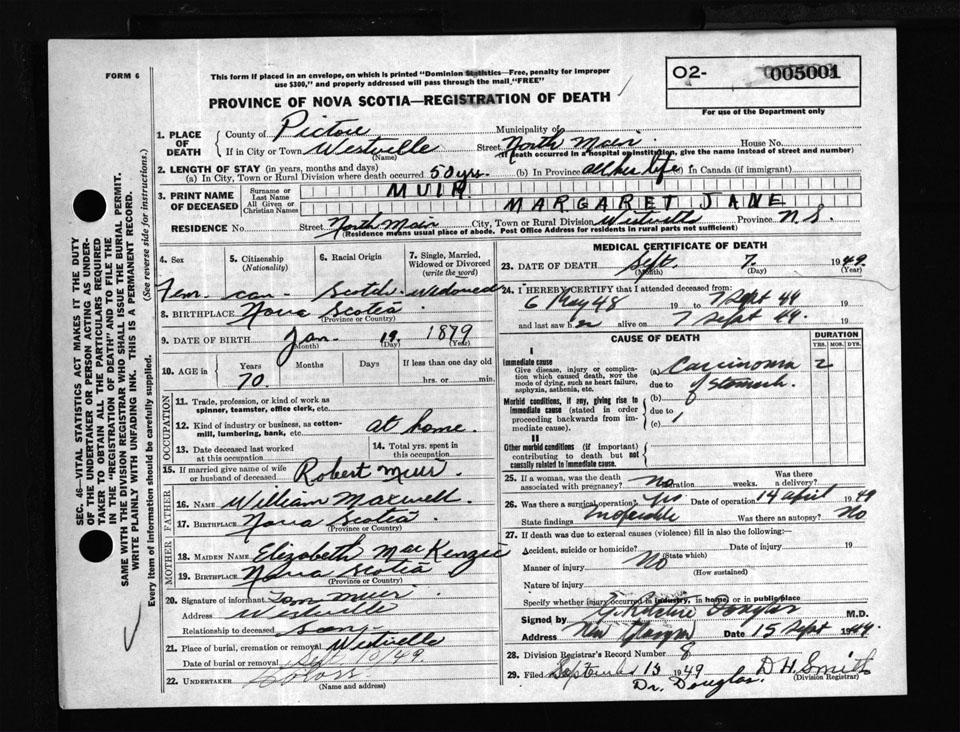 FORM 6
This form if placed in an envelope, on which is printed "Dominion Statistics—Free, penalty for improper
use $300," and properly addressed will pass through the mail "FREE"
02- 005001
For use of the Department only
PROVINCE OF NOVA SCOTIA—REGISTRATION OF DEATH
1. PLACE OF DEATH
County of Pictou Municipality of
If in City or Town Westville Street North Main House No.
(Name) (If death occurred in a hospital or institution, give the name instead of street and number)
2. LENGTH OF STAY (in years, months and days)
(a) In City, Town or Rural Division where death occurred 50 yrs. (b) In Province all her life (c) In Canada (if immigrant)
3. PRINT NAME OF DECEASED
Surname or Last Name MUIR
All Given or Christian Names MARGARET JANE
RESIDENCE No. Street North Main City, Town or Rural Division Westville Province N.S.
(Residence means usual place of abode. Post Office Address for residents in rural parts not sufficient)
4. Sex 5. Citizenship (Nationality) 6. Racial Origin 7. Single, Married, Widowed or Divorced (write the word)
Fem can Scotch Widowed
8. BIRTHPLACE Nova Scotia
(Province or Country)
9. DATE OF BIRTH Jan. 19 1879
(Month) (Day) (Year)
10. AGE in Years Months Days If less than one day old
70 hrs. or min.
OCCUPATION
11. Trade, profession, or kind of work as
spinner, teamster, office clerk, etc.
12. Kind of industry or business, as cotton-
mill, lumbering, bank, etc. at home.
13. Date deceased last worked
at this occupation
14. Total yrs. spent in
this occupation
15. If married give name of wife
or husband of deceased Robert Muir.
FATHER
16. NAME William Maxwell.
17. BIRTHPLACE Nova Scotia
(Province or Country)
MOTHER
18. MAIDEN NAME Elizabeth MacKenzie
19. BIRTHPLACE Nova Scotia
(Province or Country)
20. Signature of informant Tom Muir
Address Westville
Relationship to deceased Son.
21. Place of burial, cremation or removal Westville
Date of burial or removal Sept 10/49.
22. UNDERTAKER
(Name and address)
MEDICAL CERTIFICATE OF DEATH
23. DATE OF DEATH Sept. 7 1949
(Month) (Day) (Year)
24. I HEREBY CERTIFY that I attended deceased from:
6 May 48 19 to 7 Sept 49 19
and last saw her alive on 7 Sept 49. 19
CAUSE OF DEATH
DURATION
YRS. MOS. DYS.
I
Immediate cause
Give disease, injury or complica-
tion which caused death, NOT the
mode of dying, such as heart failure,
asphyxia, asthenia, etc.
(a) Carcinoma 2
due to
(b) of stomach.
Morbid conditions, if any, giving rise to
immediate cause (stated in order
proceeding backwards from im-
mediate cause).
due to
(c)
II
Other morbid conditions (if important)
contributing to death but not
causally related to immediate cause.
25. If a woman, was the death
associated with pregnancy? No Duration weeks. Was there a delivery?
26. Was there a surgical operation? Yes Date of operation 14 april 1949
State findings inoperable Was there an autopsy? No
27. If death was due to external causes (violence) fill in also the following:—
Accident, suicide or homicide? Date of injury 19
(State which)
Manner of injury No
(How sustained)
Nature of injury
Specify whether injury occurred in industry, in home, or in public place
Signed by Douglas M.D.
Address New Glasgow Date 15 Sept 1949
28. Division Registrar's Record Number 8
29. Filed September 15 1949 D H. Smith
(Division Registrar)
Dr. Douglas.
SEC. 46—VITAL STATISTICS ACT MAKES IT THE DUTY
OF THE UNDERTAKER OR PERSON ACTING AS UNDER-
TAKER TO OBTAIN ALL THE PARTICULARS REQUIRED
IN THE "REGISTRATION OF DEATH" AND TO FILE THE
SAME WITH THE DIVISION REGISTRAR WHO SHALL ISSUE THE BURIAL PERMIT.
WRITE PLAINLY WITH UNFADING INK. THIS IS A PERMANENT RECORD.
Every item of information should be carefully supplied. (See reverse side for instructions.)